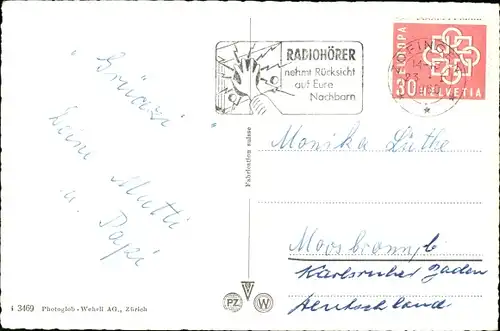 "Grüazi"
Deine Mutti
u. Papi
RADIOHÖRER
nehmt Rücksicht
auf Eure
Nachbarn
ZOFINGEN
14-
23
EUROPA
30
HELVETIA
Fabrication suisse
Monika Luthe
Moosbronn
Karlsruher Baden
Deutschland
i 3469 Photoglob-Wehrli AG., Zürich
PZ W